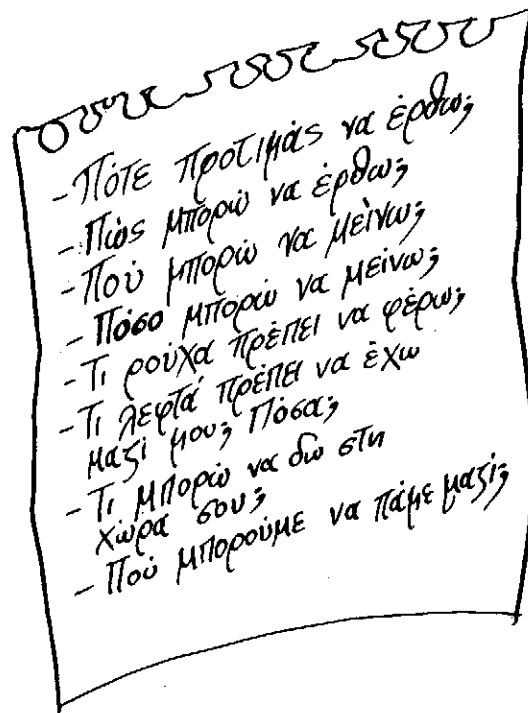 - Πότε προτιμάς να έρθω;
- Πώς μπορώ να έρθω;
- Πού μπορώ να μείνω;
- Πόσο μπορώ να μείνω;
- Τι ρούχα πρέπει να φέρω;
- Τι λεφτά πρέπει να έχω
μαζί μου; Πόσα;
- Τι μπορώ να δω στη
χώρα σου;
- Πού μπορούμε να πάμε μαζί;